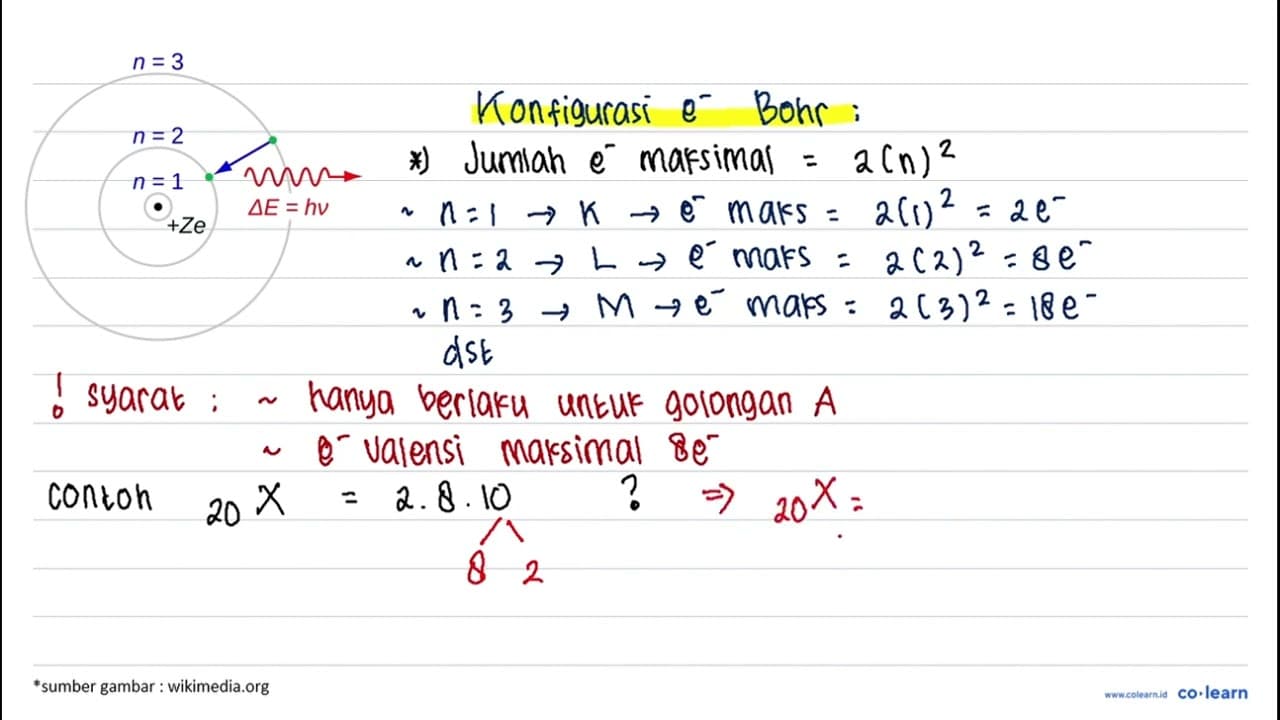 n = 3
n = 2
n = 1
+Ze
ΔE = hν
Konfigurasi e⁻ Bohr :
*) Jumlah e⁻ maksimal = 2(n)²
~ n = 1 → K → e⁻ maks = 2(1)² = 2e⁻
~ n = 2 → L → e⁻ maks = 2(2)² = 8e⁻
~ n = 3 → M → e⁻ maks = 2(3)² = 18e⁻
dst
! syarat : ~ hanya berlaku untuk golongan A
~ e⁻ valensi maksimal 8e⁻
contoh ₂₀X = 2.8.10 ? ⇒ ₂₀X =
8 2
*sumber gambar : wikimedia.org
www.colearn.id co·learn